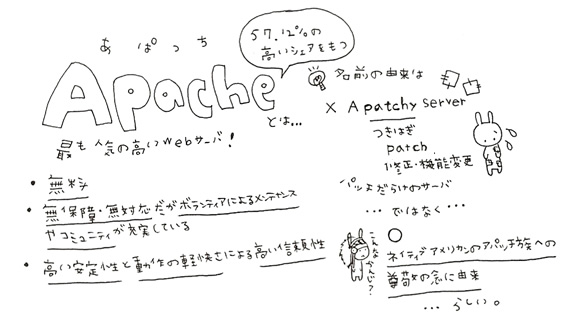 あぱっち
Apache
57.12%の
高いシェアをもつ
とは...
最も人気の高いWebサーバ!
・無料
・無保障・無対応だがボランティアによるメンテナンス
やコミュニティが充実している
・高い安定性と動作の軽快さによる高い信頼性
名前の由来は
× A patchy server
つぎはぎ
patch
修正・機能変更
パッチだらけのサーバ
...ではなく...
○
こんなかんじ?
ネイティブアメリカンのアパッチ族への
尊敬の念に由来
...らしい。